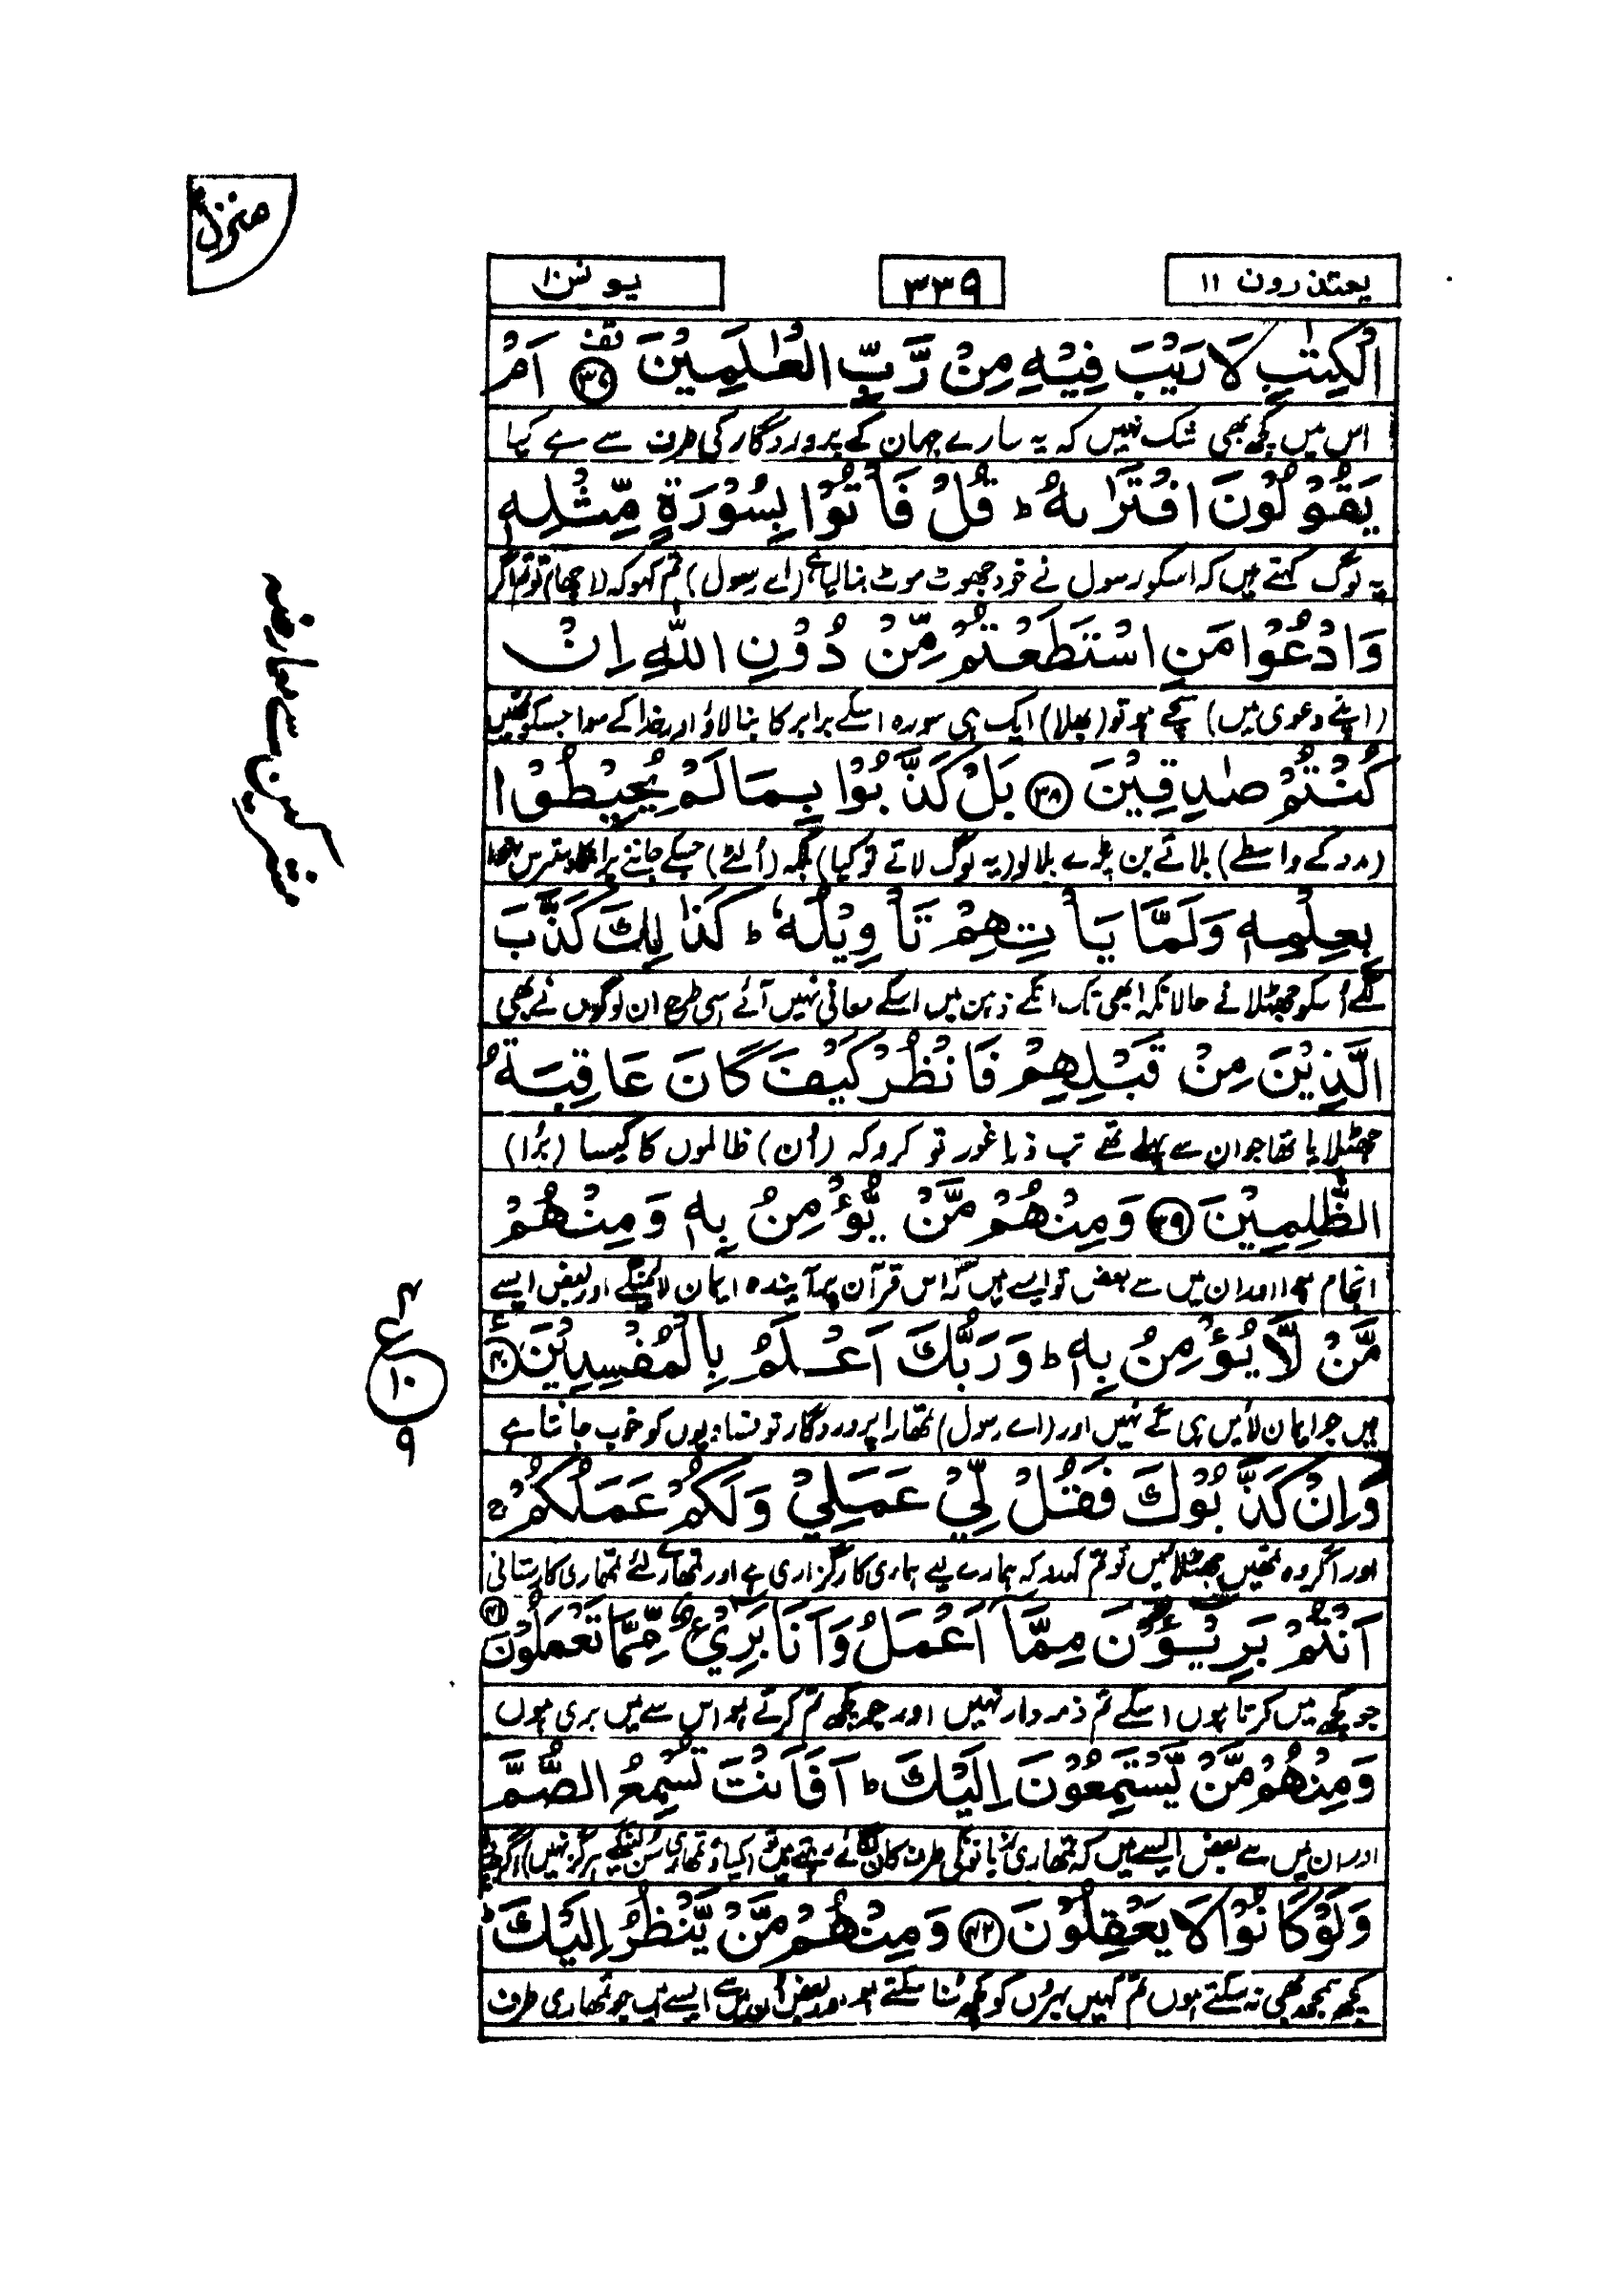 منزل
یعتذرون ۱۱
۳۳۹
یونس ۱۰
الْكِتٰبِ لَا رَيْبَ فِيْهِ مِنْ رَّبِّ الْعٰلَمِيْنَ ﴿۳۷﴾ قف اَمْ
اس میں کچھ بھی شک نہیں کہ یہ سارے جہان کے پروردگار کی طرف سے ہے کیا
يَقُوْلُوْنَ افْتَرٰىهُ ؕ قُلْ فَاْتُوْا بِسُوْرَةٍ مِّثْلِهٖ
یہ لوگ کہتے ہیں کہ اسکو رسول نے خود جھوٹ موٹ بنا لیا ہے (اے رسول) تم کہو کہ لا چھا تو تم اگر
وَادْعُوْا مَنِ اسْتَطَعْتُمْ مِّنْ دُوْنِ اللّٰهِ اِنْ
(اپنے دعوی میں) سچے ہو تو (بھلا) ایک ہی سورہ اسکے برابر کا بنا لاؤ اور خدا کے سوا جسکو تمھیں
كُنْتُمْ صٰدِقِيْنَ ﴿۳۸﴾ بَلْ كَذَّبُوْا بِمَا لَمْ يُحِيْطُوْا
(مدد کے واسطے) بلائے بن پڑے بلا لو (یہ لوگ لاتے تو کیا) بلکہ (اُلٹے) جسکے جاننے پر
بِعِلْمِهٖ وَلَمَّا يَاْتِهِمْ تَاْوِيْلُهٗ ؕ كَذٰلِكَ كَذَّبَ
لگے اُسکو جھٹلانے حالانکہ ابھی تک انکے ذہن میں اسکے معانی نہیں آئے اسی طرح ان لوگوں نے بھی
الَّذِيْنَ مِنْ قَبْلِهِمْ فَانْظُرْ كَيْفَ كَانَ عَاقِبَةُ
جھٹلایا تھا جو ان سے پہلے تھے تب ذرا غور تو کرو کہ (اُن) ظالموں کا کیسا (بُرا)
الظّٰلِمِيْنَ ﴿۳۹﴾ وَمِنْهُمْ مَّنْ يُّؤْمِنُ بِهٖ وَمِنْهُمْ
انجام ہوا اور ان میں سے بعض تو ایسے ہیں کہ اس قرآن پر آیندہ ایمان لائینگے اور بعض ایسے
مَّنْ لَّا يُؤْمِنُ بِهٖ ؕ وَرَبُّكَ اَعْلَمُ بِالْمُفْسِدِيْنَ ﴿۴۰﴾
ہیں جو ایمان لائیں ہی گے نہیں اور (اے رسول) تمھارا پروردگار تو فسادیوں کو خوب جانتا ہے
وَاِنْ كَذَّبُوْكَ فَقُلْ لِّيْ عَمَلِيْ وَلَكُمْ عَمَلُكُمْ ۚ
اور اگر وہ تمھیں جھٹلائیں تو تم کہدو کہ ہمارے لیے ہماری کارگزاری ہے اور تمھارے لئے تمہاری کارستانی
اَنْتُمْ بَرِيْٓـُٔوْنَ مِمَّآ اَعْمَلُ وَاَنَا بَرِيْٓءٌ مِّمَّا تَعْمَلُوْنَ ﴿۴۱﴾
جو کچھ میں کرتا ہوں اسکے تم ذمہ دار نہیں اور جو کچھ تم کرتے ہو اس سے میں بری ہوں
وَمِنْهُمْ مَّنْ يَّسْتَمِعُوْنَ اِلَيْكَ ؕ اَفَاَنْتَ تُسْمِعُ الصُّمَّ
اور ان میں سے بعض ایسے ہیں کہ تمھاری باتوں کی طرف کان لگائے رہتے ہیں تو (کیا وہ تمھاری سن لینگے ہرگز نہیں) اگرچہ
وَلَوْ كَانُوْا لَا يَعْقِلُوْنَ ﴿۴۲﴾ وَمِنْهُمْ مَّنْ يَّنْظُرُ اِلَيْكَ ؕ
کچھ سمجھ بھی نہ سکتے ہوں تم کہیں بہروں کو کچھ سُنا سکتے ہو اور بعض اُن میں سے ایسے ہیں جو تمھاری طرف
مشرکین سے معارضہ
۴
ع
۱۰
۹